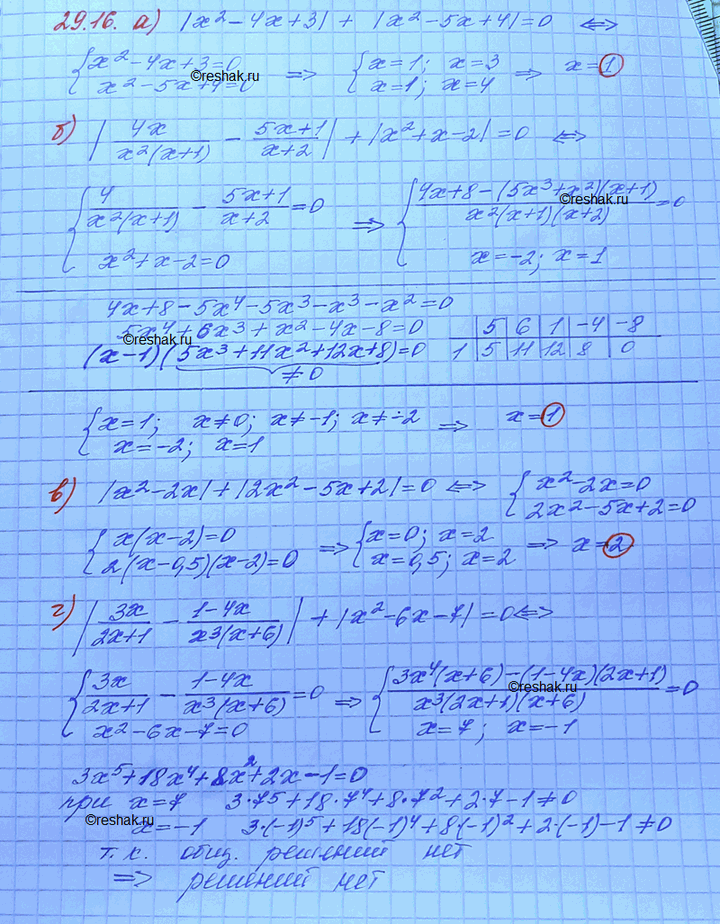 29.16. а) |x²-4x+3| + |x²-5x+4|=0 ⟺
{x²-4x+3=0 ⇒ {x=1; x=3 ⇒ x=1
x²-5x+4=0 x=1; x=4
©reshak.ru
б) |4x/x²(x+1) - 5x+1/x+2| + |x²+x-2|=0 ⟺
{4/x²(x+1) - 5x+1/x+2=0 ⇒ {4x+8-(5x³+x²)(x+1)/x²(x+1)(x+2)=0
©reshak.ru
x²+x-2=0 x=-2; x=1
4x+8-5x⁴-5x³-x³-x²=0
5x⁴+6x³+x²-4x-8=0 | 5 | 6 | 1 | -4 | -8
©reshak.ru
(x-1)(5x³+11x²+12x+8)=0 1 | 5 | 11 | 12 | 8 | 0
≠0
{x=1; x≠0; x≠-1; x≠-2 ⇒ x=1
x=-2; x=1
в) |x²-2x|+|2x²-5x+2|=0 ⟺ {x²-2x=0
2x²-5x+2=0
{x(x-2)=0 ⇒ {x=0; x=2 ⇒ x=2
2(x-0,5)(x-2)=0 x=0,5; x=2
г) |3x/2x+1 - 1-4x/x³(x+6)| + |x²-6x-7|=0 ⟺
{3x/2x+1 - 1-4x/x³(x+6)=0 ⇒ {3x⁴(x+6)-(1-4x)(2x+1)/x³(2x+1)(x+6)=0
©reshak.ru
x²-6x-7=0 x=7; x=-1
3x⁵+18x⁴+8x²+2x-1=0
при x=7 3·7⁵+18·7⁴+8·7²+2·7-1≠0
©reshak.ru
x=-1 3·(-1)⁵+18(-1)⁴+8(-1)²+2·(-1)-1≠0
т.к. общ. решений нет
⇒ решений нет